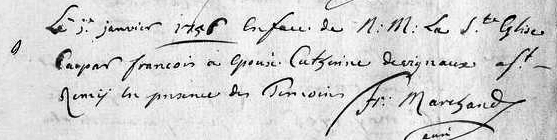 Le j.r janvier 1756 en face de N: M: La S.te Eglise
Caspar francois à Epousé Catherine devignaux a S.t
Remij en presence des Temoins
fr: Marchand
curé